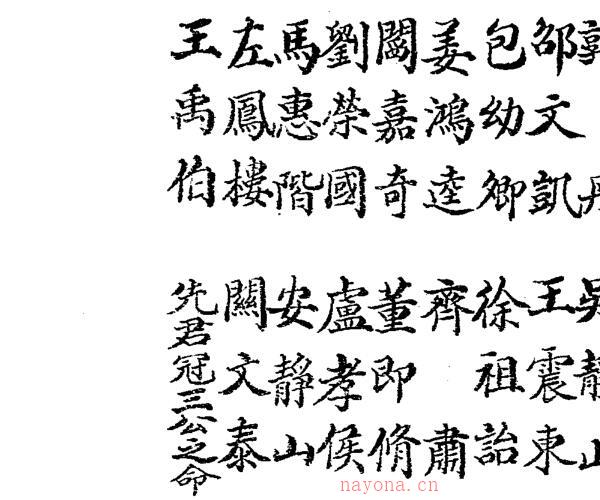 邵文凱 王震東
包幼卿 徐祖詒
姜鴻逵 齊肅
闞嘉奇 董即脩
劉榮國 盧孝侯
馬惠階 安靜山
左鳳樓 關文泰
王禹伯 先君冠三公之命
nayona.cn